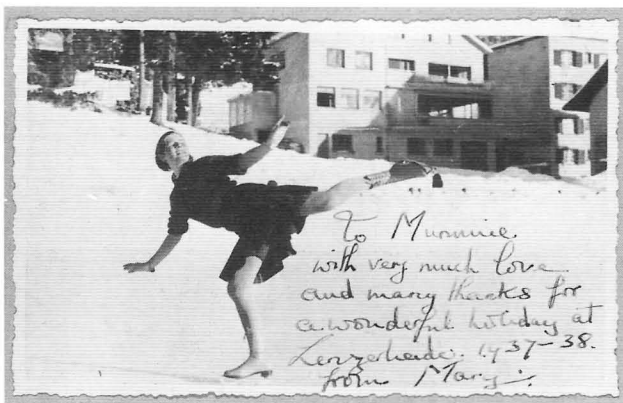 To Mummie.
with very much love
and many thanks for
a wonderful holiday at
Lenzerheide. 1937-38.
from Mary.